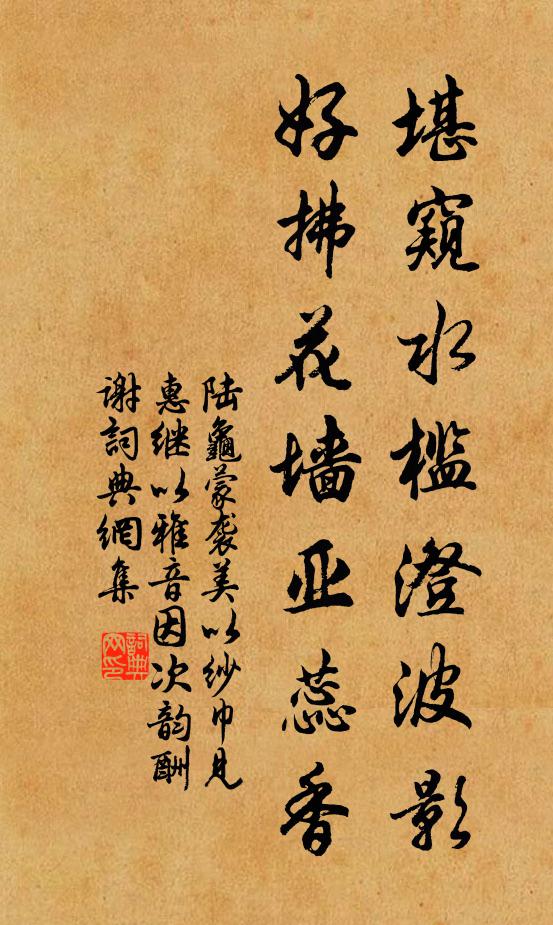 堪窥水槛澄波影
好拂花墙亚蕊香
陆龜蒙袭美以纱巾见
惠继以雅音因次韵酬
谢詞典網集
詞典网印